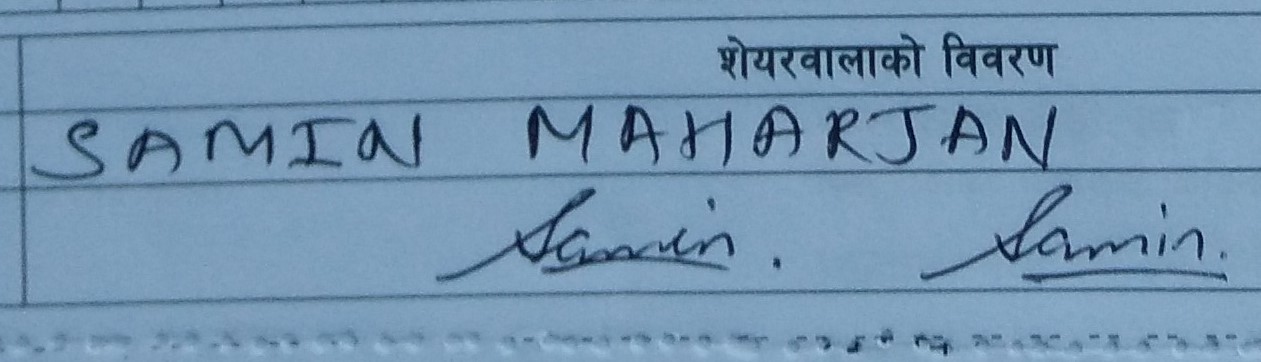 शेयरवालाको विवरण
SAMIN MAHARJAN
Samin. Samin.